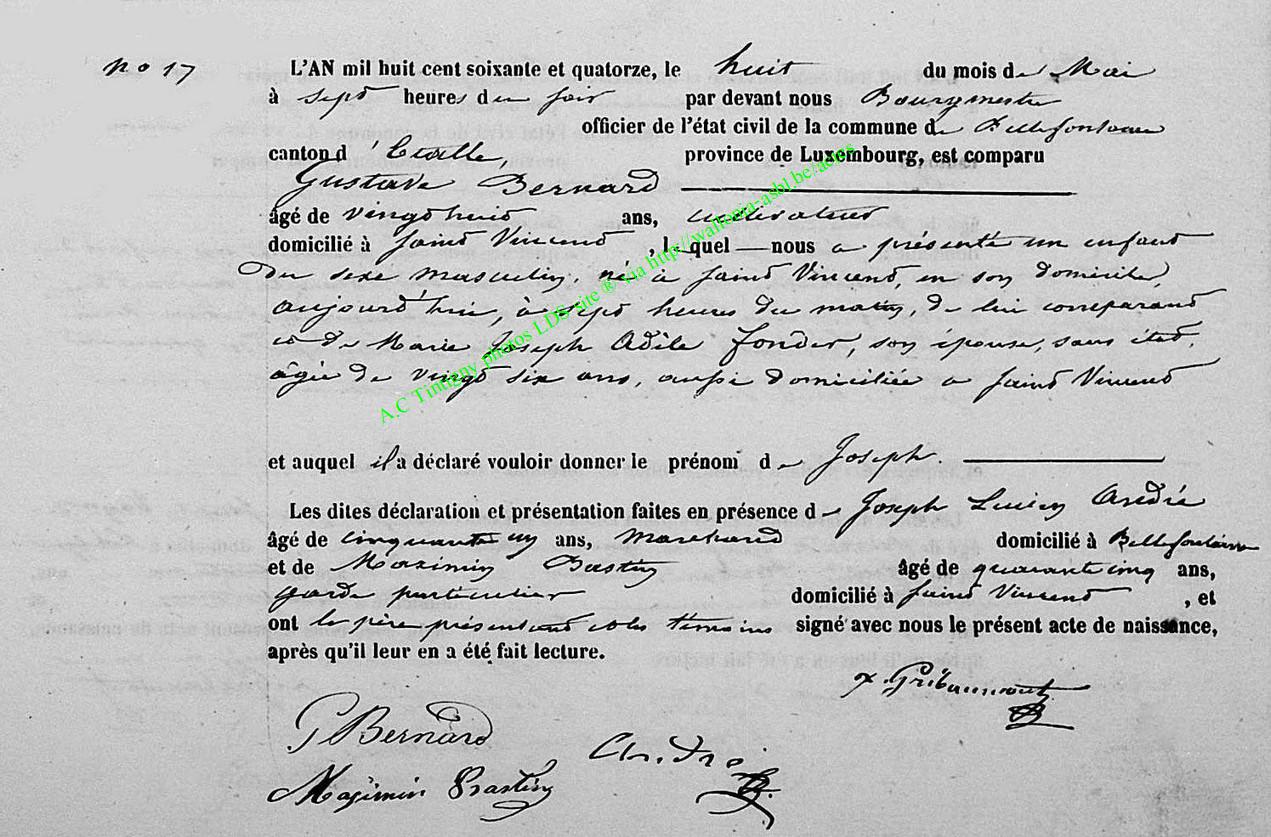 no 17
L'AN mil huit cent soixante et quatorze, le huit du mois de Mai
à sept heures du soir par devant nous Bourgmestre
officier de l'état civil de la commune de Bellefontaine
canton d'Etalle, province de Luxembourg, est comparu
Gustave Bernard
âgé de vingt huit ans, cultivateur
domicilié à Saint Vincent, lequel nous a présenté un enfant
du sexe masculin, né à Saint Vincent, en son domicile,
aujourd'hui, à sept heures du matin, de lui comparant
et de Marie Joseph Adile Fonder, son épouse, sans état,
âgée de vingt six ans, aussi domiciliée à Saint Vincent
et auquel il a déclaré vouloir donner le prénom de Joseph
Les dites déclaration et présentation faites en présence de Joseph Lucien André
âgé de cinquante un ans, marchand domicilié à Bellefontaine
et de Maximin âgé de quarante cinq ans,
garde particulier domicilié à Saint Vincent, et
ont le père présentant et les témoins signé avec nous le présent acte de naissance,
après qu'il leur en a été fait lecture.
Gribaumont
G Bernard
André
Maximin
A.C Tintigny photos LDS site ® via http://wallonia-asbl.be/actes